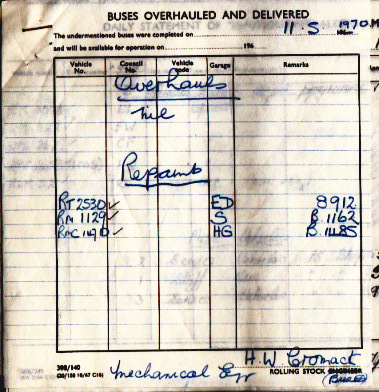 BUSES OVERHAULED AND DELIVERED
The undermentioned buses were completed on 11.5 1970
and will be available for operation on 196
Vehicle No. Council No. Vehicle code Garage Remarks
Overhauls
nil
Repaints
RT 2530 ✓ ED 8912
RM 1129 ✓ S B 1162
RMC 1490 ✓ HG B. 1485
H.W. Cromack
308/140 Mechanical Eng ROLLING STOCK ENGINEER
(20/158 10/67 C16) (Buses)